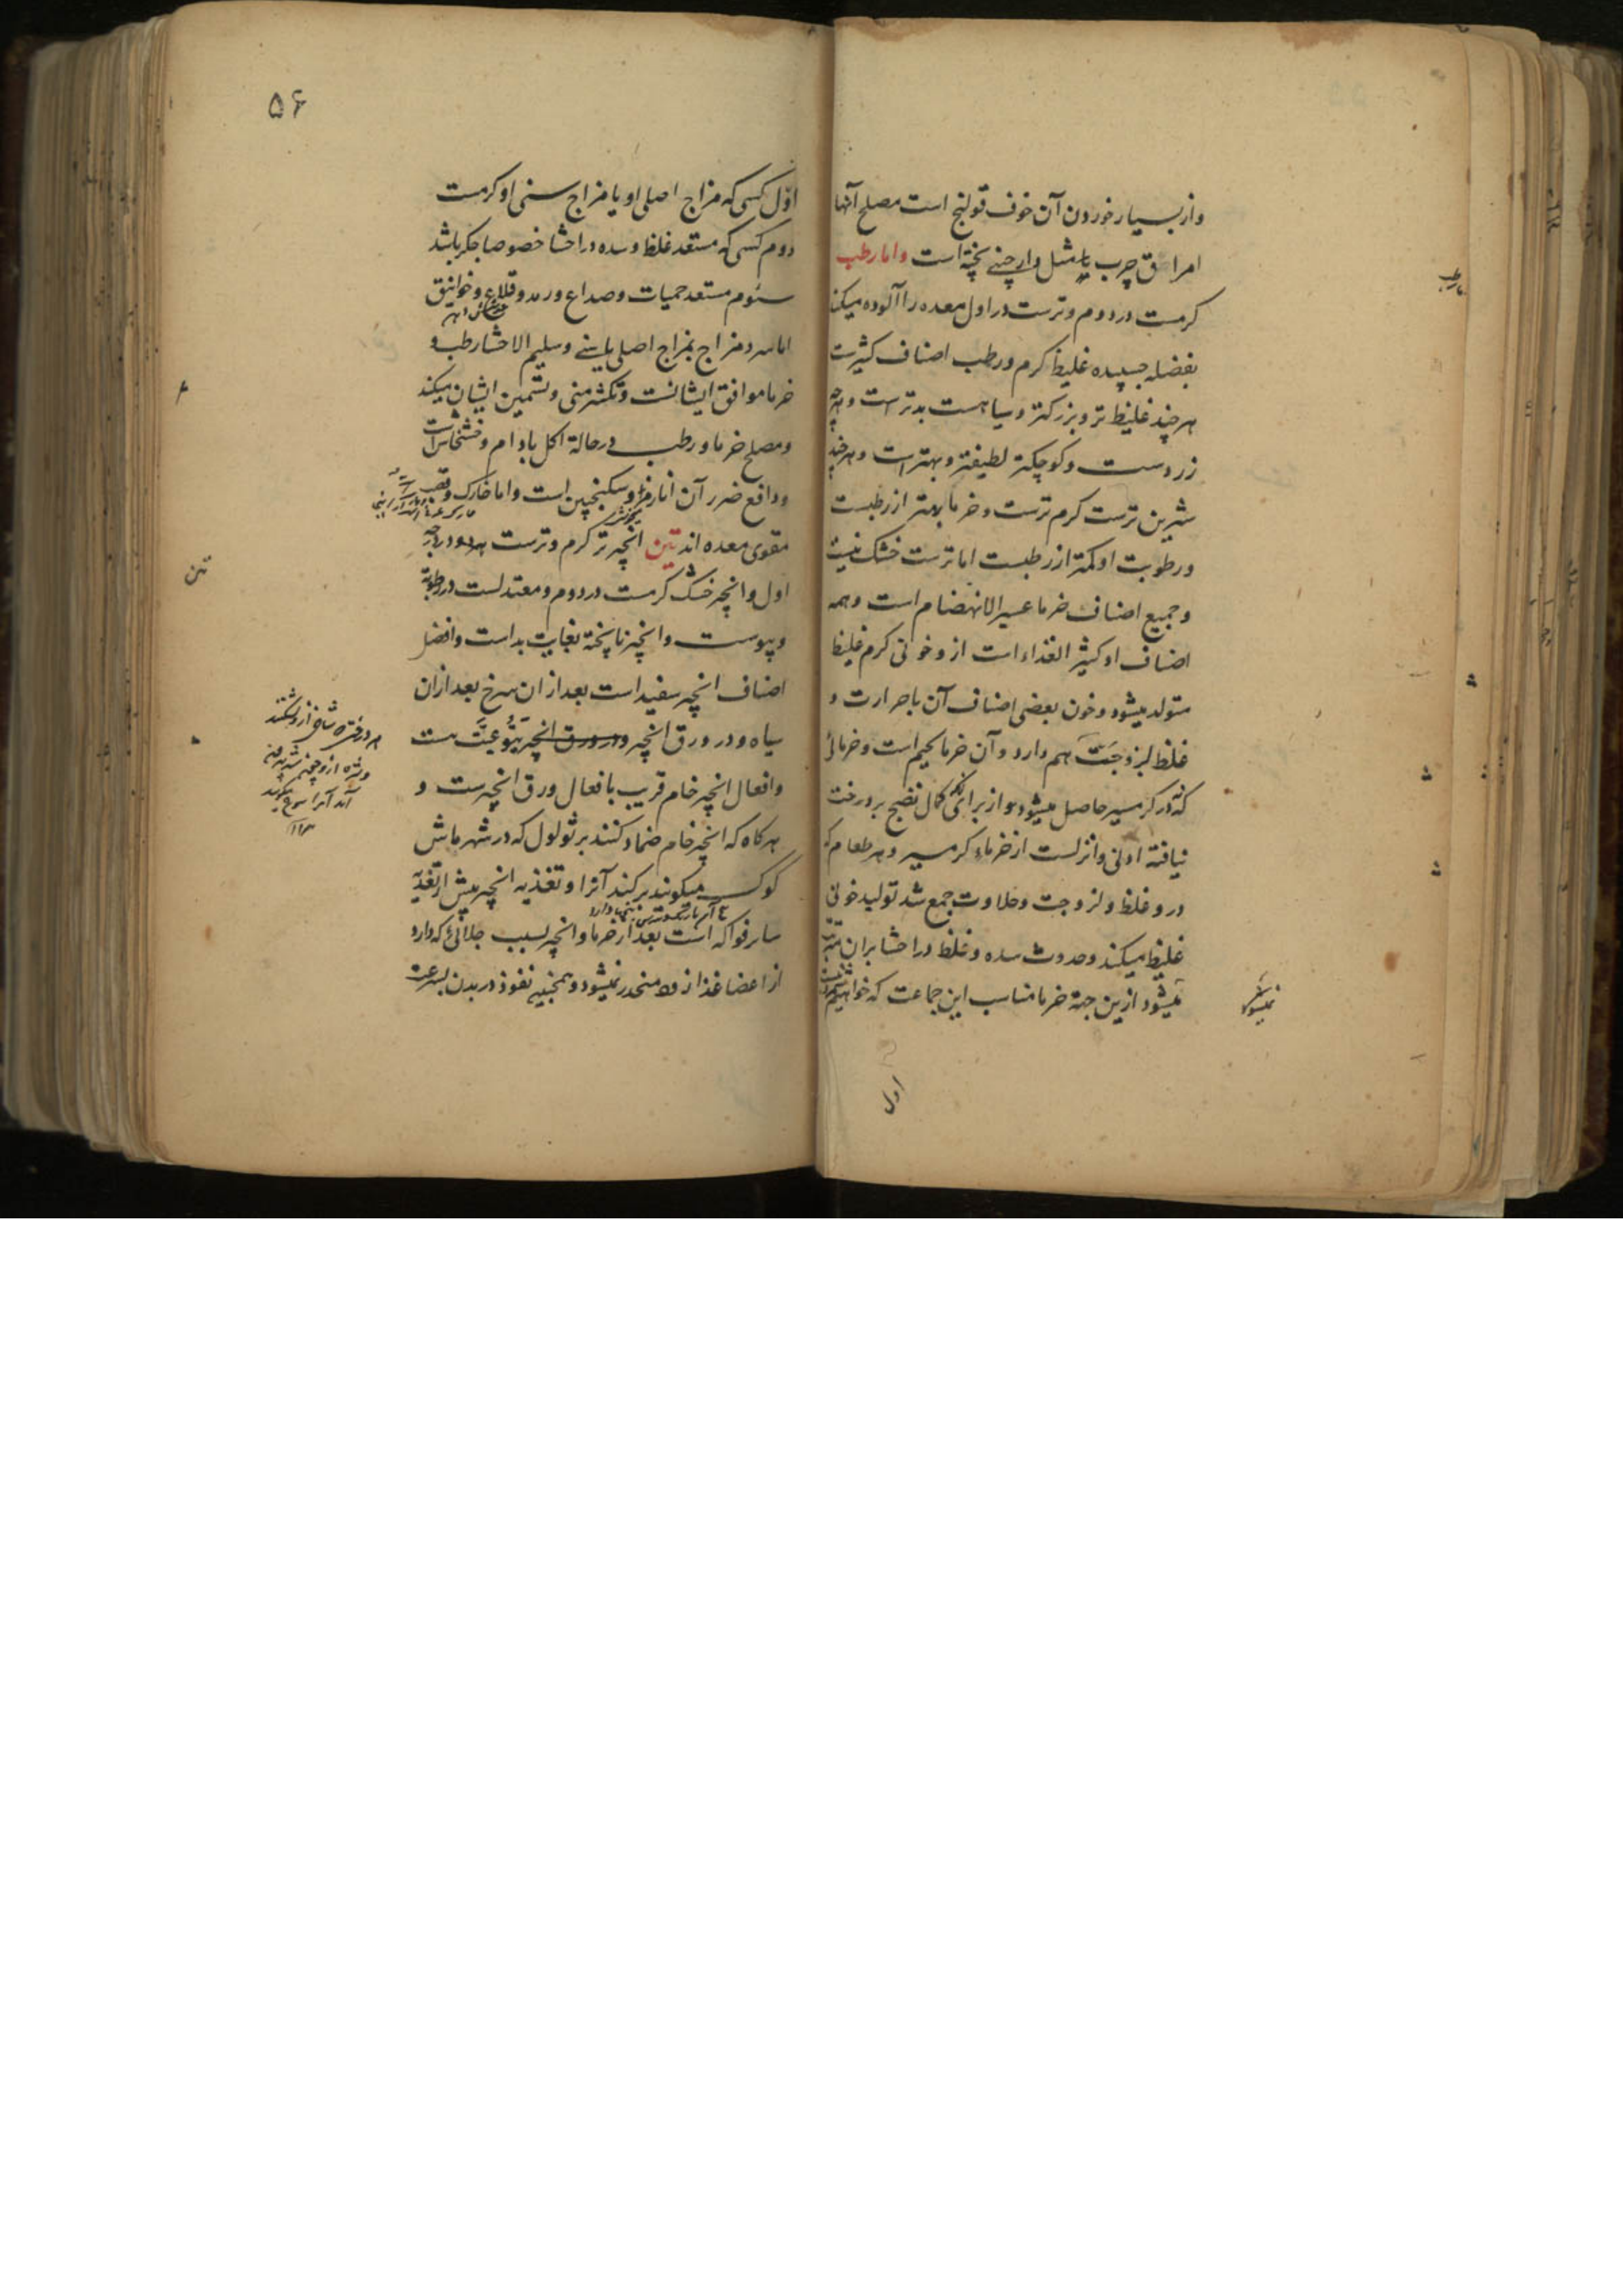 و از بسیار خوردن آن خوف قولنج است مصلح آنها
امراق چرب با مثل دارچینی پخته است و اما رطب
کرمست در دوم و ترست در اول معده را آلوده میکند
بفضله چسپیده غلیظ کرم و رطب اصناف کثیرست
هر چند غلیظ تر و بزرکتر و سیاهست بدترست و هر چه
زردست و کوچکتر لطیفتر و بهترست و هر چند
شیرین ترست کرم ترست و خرما بهتر از رطبست
و رطوبت او کمتر از رطبست اما ترست خشک نیست
و جمیع اصناف خرما عسیر الانهضام است و همه
اصناف او کثیر الغذاء است از و خونی کرم غلیظ
متولد میشود و خون بعضی اصناف آن با حرارت و
غلظ لزوجت هم دارد و آن خرما لحیم است و خرمائی
که در کرمسیر حاصل میشود و از برای آنکه کمال نضج بر درخت
نیافته اولی و انزلست از خرماء کرمسیر و هر طعام که
درو غلظ و لزوجت و حلاوت جمع شد تولید خونی
غلیظ میکند و حدوث سده و غلظ در احشا بر ان مترتب
میشود ازین جهة خرما مناسب این جماعت که خواهیم
نمیشود
اول
رطب
۵۶
اول کسی که مزاج اصلی او یا مزاج سنی او کرمست
دوم کسی که مستعد غلظ و سده در احشا خصوصا جکر باشد
سئوم مستعد حمیات و صداع و رمد و قلاع و خوانیق
اما سرد مزاج بمزاج اصلی یا سنی و سلیم الاحشا رطب و
خرما موافق ایشانست و تکثیر منی و تسمین ایشان میکند
و مصلح خرما و رطب در حالة اکل بادام و خشخاش است
و دافع ضرر آن انار مز و سکنجبین است و اما خارک و قصب
مقوی معده اند تین انجیر تر کرم و ترست هر دو در درجه
اول و انجیر خشک کرمست در دوم و معتدلست در رطوبة
و یبوست و انجیر نا پخته بغایت بد است و افضل
اصناف انجیر سفید است بعد از ان سرخ بعد از ان
سیاه و در ورق انجیر و در ورق انجیر یتوعیت هست
و افعال انجیر خام قریب بافعال ورق انجیرست و
هر کاه که انجیر خام ضماد کنند بر ثولول که در شهر ماش
کوک میکویند بر کند آنرا و تغذیه انجیر بیش از تغذیه
سایر فواکه است بعد از خرما و انجیر بسبب جلائی که دارد
از اعضا غذا ازو منحدر نمیشود و همچنین نفوذ در بدن بسرعت
تین